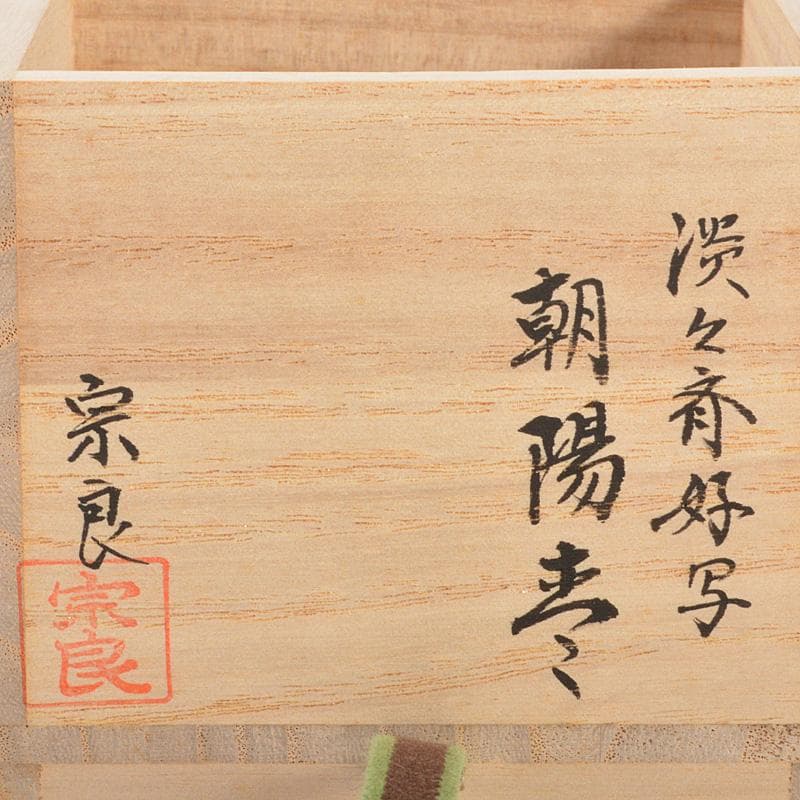 淡々斎好写
朝陽棗
宗良
宗良